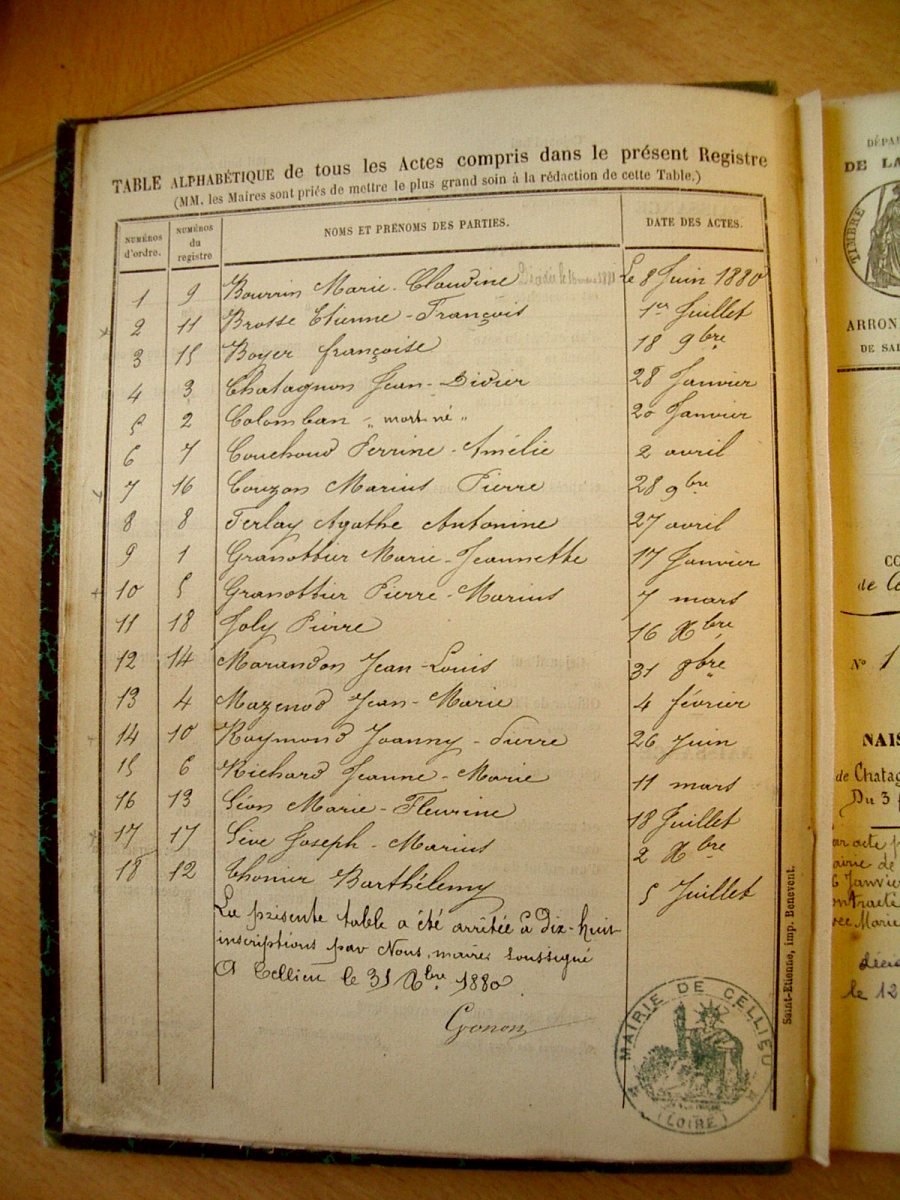 TABLE ALPHABÉTIQUE de tous les Actes compris dans le présent Registre
(MM. les Maires sont priés de mettre le plus grand soin à la rédaction de cette Table.)
NUMÉROS d'ordre. NUMÉROS du registre NOMS ET PRÉNOMS DES PARTIES. DATE DES ACTES.
1 9 Bourrin Marie-Claudine Le 8 Juin 1880
2 11 Brosse Etienne-François 1er Juillet
3 15 Boyer françoise 18 9bre
4 3 Chatagnon Jean-Didier 28 Janvier
5 2 Colomban „ mort né „ 20 Janvier
6 7 Couchoud Perrine-Amélie 2 avril
7 16 Couzon Marius Pierre 28 9bre
8 8 Ferlay Agathe Antonine 27 avril
9 1 Granottier Marie-Jeannette 17 Janvier
10 5 Granottier Pierre-Marius 7 mars
11 18 Joly Pierre 16 Xbre
12 14 Marandon Jean-Louis 31 8bre
13 4 Mazenod Jean-Marie 4 février
14 10 Raymond Joanny-Pierre 26 Juin
15 6 Richard Jeanne-Marie 11 mars
16 13 Séon Marie-Fleurine 18 Juillet
17 17 Sève Joseph-Marius 2 Xbre
18 12 Thomier Barthélemy 5 Juillet
La présente table a été arrêtée à Dix-huit
inscriptions par Nous, maire, soussigné
A Cellieu le 31 Xbre 1880.
Gonon
MAIRIE DE CELLIEU
(LOIRE)
Saint-Etienne, imp. Benevent.
DÉPA
DE LA
TIMBRE
ARRON
DE SA
CO
de Ce
N° 1
NAIS
de Chatag
Du 3
ar acte p
airie de
Janvie
ontracté
vec Marie
le 12